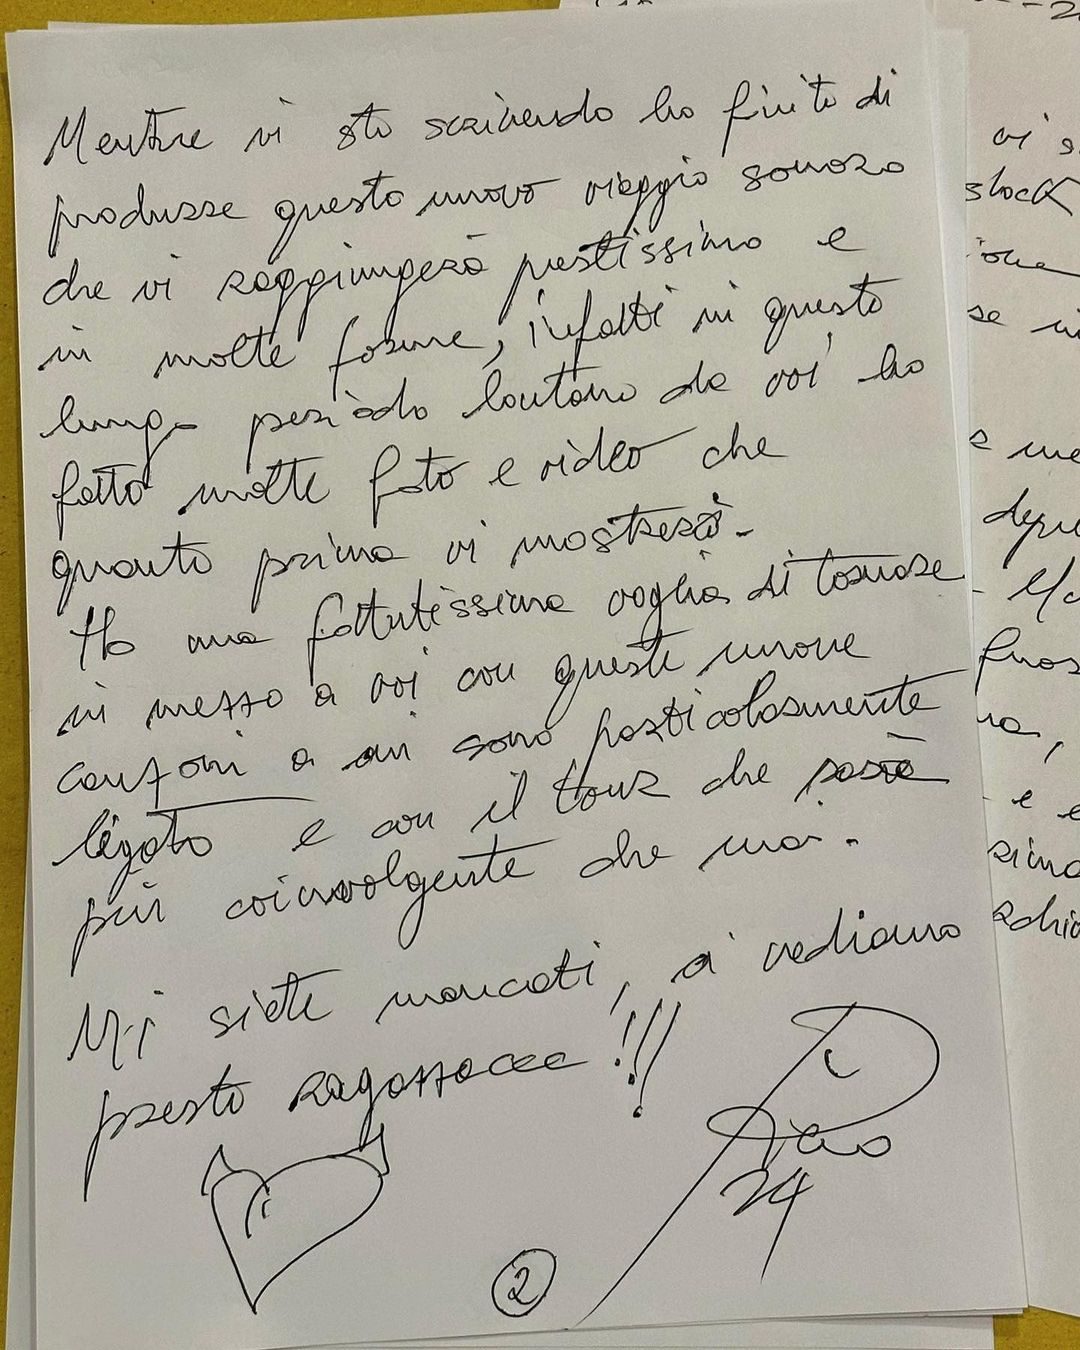 Mentre vi sto scrivendo ho finito di
produrre questo nuovo viaggio sonoro
che vi raggiungerà prestissimo e
in molte forme, infatti in questo
lungo periodo lontano da voi ho
fatto molte foto e video che
quanto prima vi mostrerò.
Ho una fottutissima voglia di tornare
in mezzo a voi con queste nuove
canzoni a cui sono particolarmente
legato e con il tour che sarà
più coinvolgente che mai.
Mi siete mancati, ci vediamo
presto ragazzacce !!!
24
2
vi s
stock
ione
se in